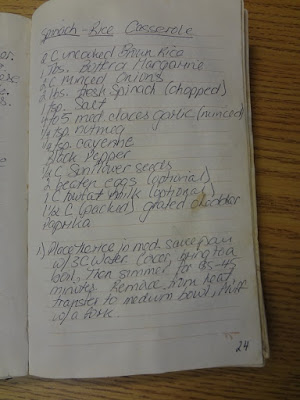 Spinach-Rice Casserole
2 C uncooked Brown Rice
Tbs. Butter/Margarine
2 C minced Onions
2 lbs. Fresh Spinach (chopped)
1 tsp. Salt
4 to 5 med. cloves garlic (minced)
1/4 tsp nutmeg
1/4 tsp. cayenne
Black Pepper
C Sunflower seeds
2 beaten eggs (optional)
1 C milk (optional)
1 1/2 C (packed) grated cheddar
Paprika
1) Place the rice in med. sauce pan
w/ 3 C Water. Cover, bring to a
boil, Then simmer for 35-45
minutes. Remove from heat,
transfer to medium bowl, fluff
w/ a fork.
24